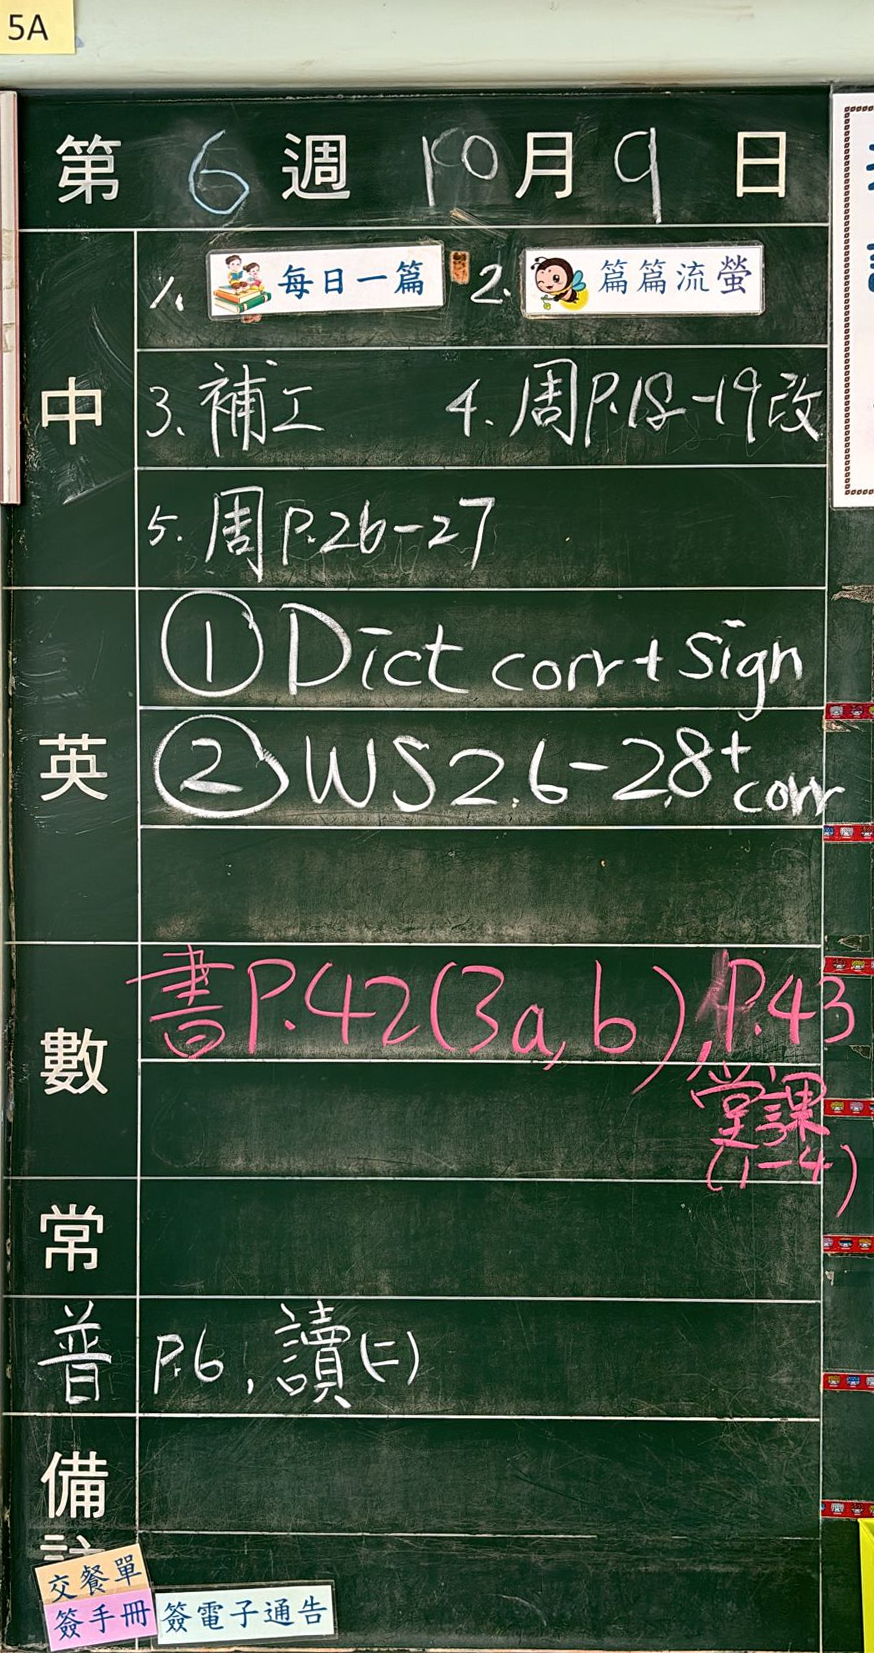 5A
第 6 週 10 月 9 日
中
1. 每日一篇 2. 篇篇流螢
3. 補工 4. 周P.18-19改
5. 周P.26-27
英
① Dict corr + sign
② WS 2.6-2.8 + corr
數
書P.42(3a,b), P.43
堂課
(1-4)
常
普
P.6, 讀(二)
備
交餐單
簽手冊
簽電子通告